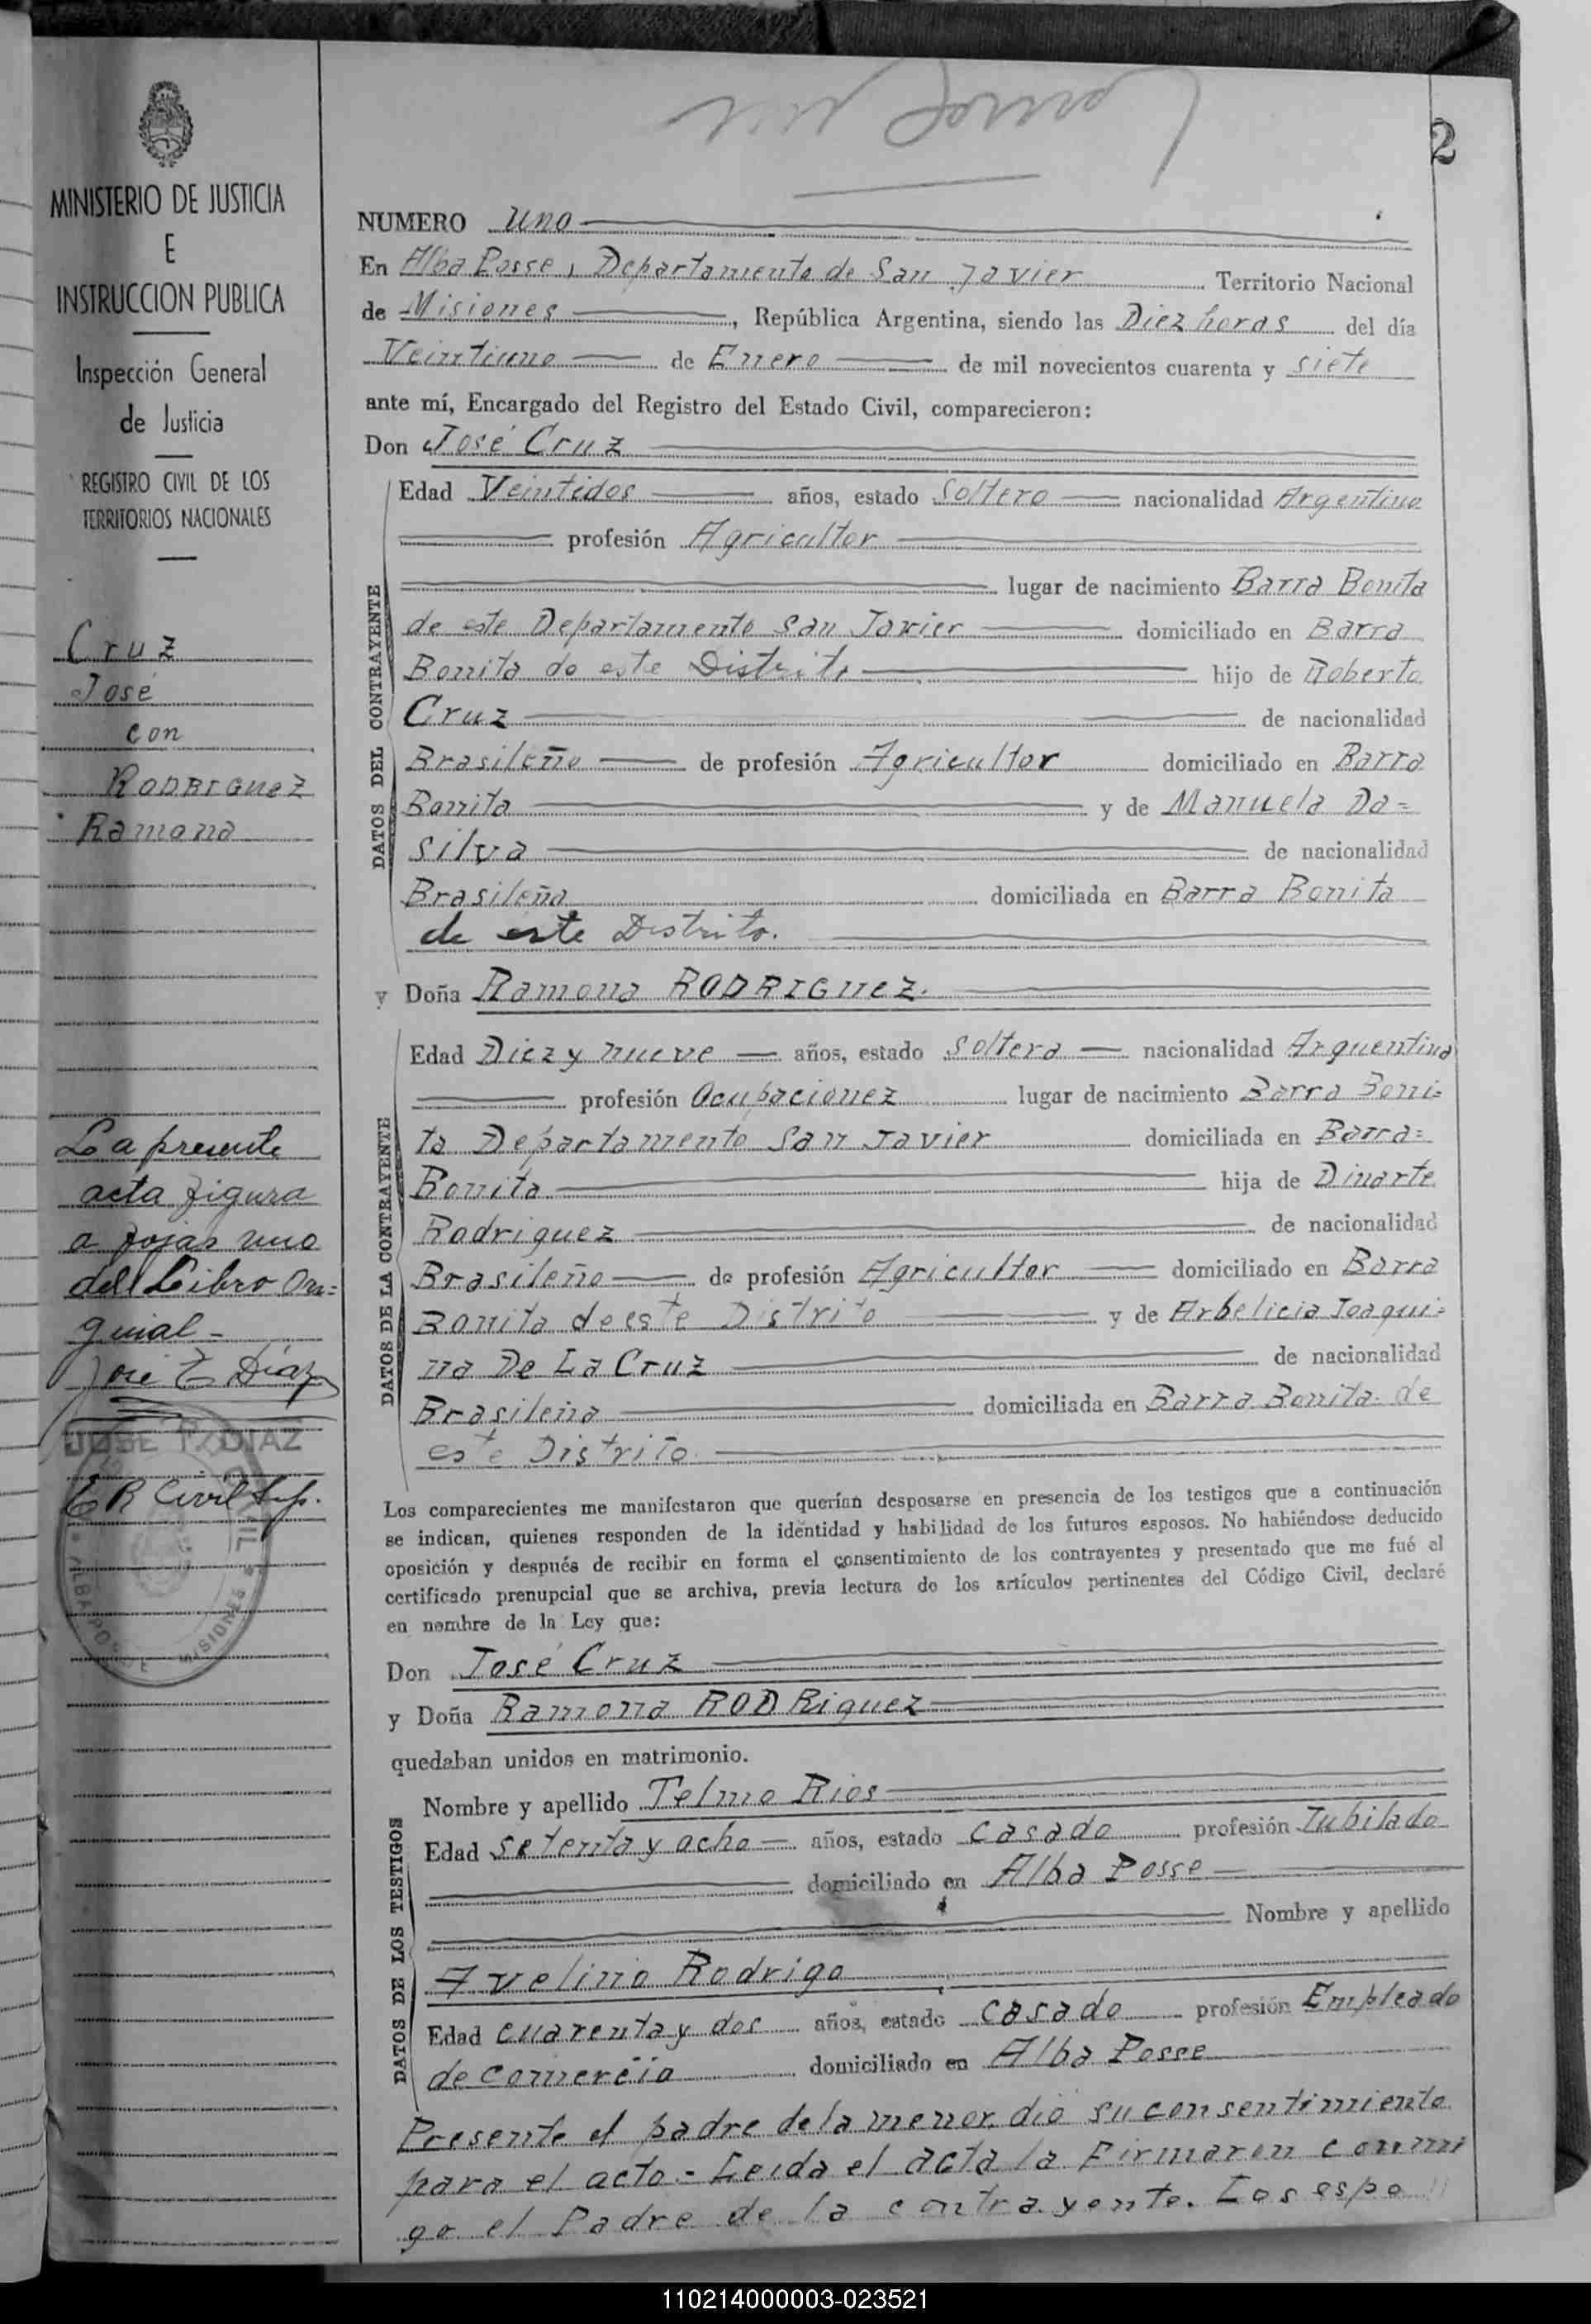 2
MINISTERIO DE JUSTICIA
E
INSTRUCCION PUBLICA
Inspección General
de Justicia
REGISTRO CIVIL DE LOS
TERRITORIOS NACIONALES
Cruz
José
con
RODRIGUEZ
Ramona
La presente
acta figura
a fojas uno
del Libro Ori=
ginal-
José T. Díaz
JOSE T. DIAZ
E R Civil Sup.
ALBA POSSE MISIONES
NUMERO Uno
En Alba Posse, Departamento de San Javier Territorio Nacional
de Misiones, República Argentina, siendo las Diez horas del día
Veintiuno de Enero de mil novecientos cuarenta y siete
ante mí, Encargado del Registro del Estado Civil, comparecieron:
Don José Cruz
DATOS DEL CONTRAYENTE
Edad Veintidos años, estado Soltero nacionalidad Argentino
profesión Agricultor
lugar de nacimiento Barra Bonita
de este Departamento San Javier domiciliado en Barra
Bonita de este Distrito hijo de Roberto
Cruz de nacionalidad
Brasileño de profesión Agricultor domiciliado en Barra
Bonita y de Manuela Da=
Silva de nacionalidad
Brasileña domiciliada en Barra Bonita
de este Distrito.
y Doña Ramona RODRIGUEZ.
DATOS DE LA CONTRAYENTE
Edad Diez y nueve años, estado Soltera nacionalidad Arguentina
profesión Ocupacionez lugar de nacimiento Barra Boni=
ta Departamento San Javier domiciliada en Barra=
Bonita hija de Dinarte
Rodriguez de nacionalidad
Brasileño de profesión Agricultor domiciliado en Barra
Bonita de este Distrito y de Arbelicia Joaqui=
na De La Cruz de nacionalidad
Brasileña domiciliada en Barra Bonita de
este Distrito
Los comparecientes me manifestaron que querían desposarse en presencia de los testigos que a continuación
se indican, quienes responden de la identidad y habilidad de los futuros esposos. No habiéndose deducido
oposición y después de recibir en forma el consentimiento de los contrayentes y presentado que me fué el
certificado prenupcial que se archiva, previa lectura de los artículos pertinentes del Código Civil, declaré
en nombre de la Ley que:
Don José Cruz
y Doña Ramona RODRiguez
quedaban unidos en matrimonio.
DATOS DE LOS TESTIGOS
Nombre y apellido Telmo Rios
Edad setenta y ocho años, estado casado profesión Jubilado
domiciliado en Alba Posse
Nombre y apellido
Avelino Rodrigo
Edad cuarenta y dos años, estado casado profesión Empleado
de comercio domiciliado en Alba Posse
Presente el padre de la menor dió su consentimiento
para el acto - Leida el acta la Firmaron conmi
go el Padre de la contrayente. Los espo
110214000003-023521